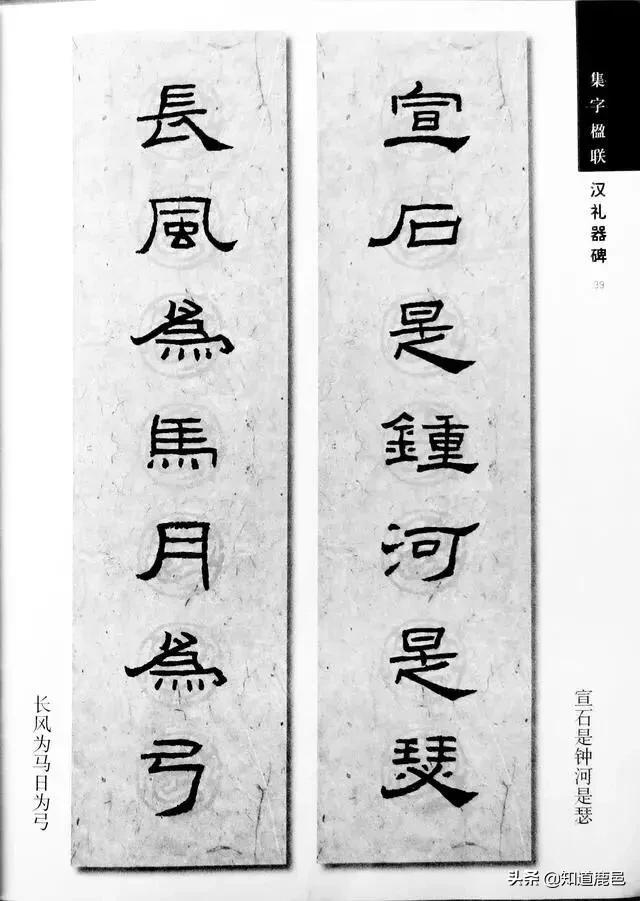 集字楹联
汉礼器碑
39
宣石是鍾河是瑟
宣石是钟河是瑟
長風為馬月為弓
长风为马日为弓
头条 @知道鹿邑